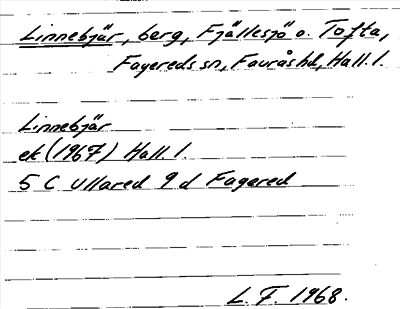 Linnebjär, berg, Fjällesjö o. Tofta,
Fagereds sn, Fauråshd, Hall. l.
Linnebjär
ek (1967) Hall. l.
5 C Ullared 9 d Fagered
L. F. 1968.